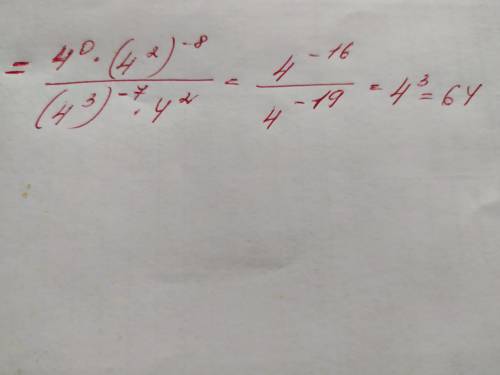 = \frac{4^0 \cdot (4^2)^{-8}}{(4^3)^{-7} \cdot 4^2} = \frac{4^{-16}}{4^{-19}} = 4^3 = 64